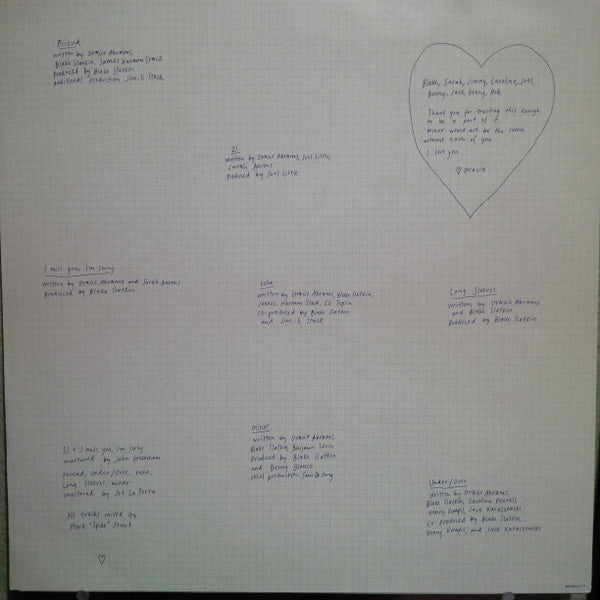 Friend
written by Gracie Abrams,
Blake Slatkin, James Harmon Stack
Produced by Blake Slatkin
additional production Jim-E Stack
Blake, Sarah, Jimmy, Caroline, Joel,
Benny, Jack, Henry, Rob,
Thank you for trusting this enough
to be a part of it.
minor would not be the same
without each of you
I love you.
♡ Gracie
21
written by Gracie Abrams, Joel Little,
Sarah Aarons
Produced by Joel Little
I miss you, I'm sorry
written by Gracie Abrams and Sarah Aarons
Produced by Blake Slatkin
tehe
written by Gracie Abrams, Blake Slatkin,
James Harmon Stack, Eli Teplin
co-produced by Blake Slatkin
and Jim-E Stack
Long Sleeves
written by Gracie Abrams
and Blake Slatkin
Produced by Blake Slatkin
21 + I miss you, I'm sorry
mastered by John Greenham
Friend, Under/Over, tehe,
Long Sleeves, minor
mastered by Joe La Porta
All tracks mixed by
Mark "Spike" Stent
♡
Minor
written by Gracie Abrams,
Blake Slatkin, Benjamin Levin
Produced by Blake Slatkin
and Benny Blanco
vocal production
Under/Over
written by Gracie Abrams,
Blake Slatkin, Caroline Pennell,
Henry Kwapis, Jack Karaszewski
Co-produced by Blake Slatkin,
Henry Kwapis, and Jack Karaszewski